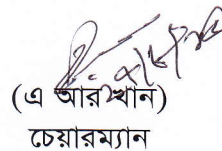 (এ আর খান)
চেয়ারম্যান